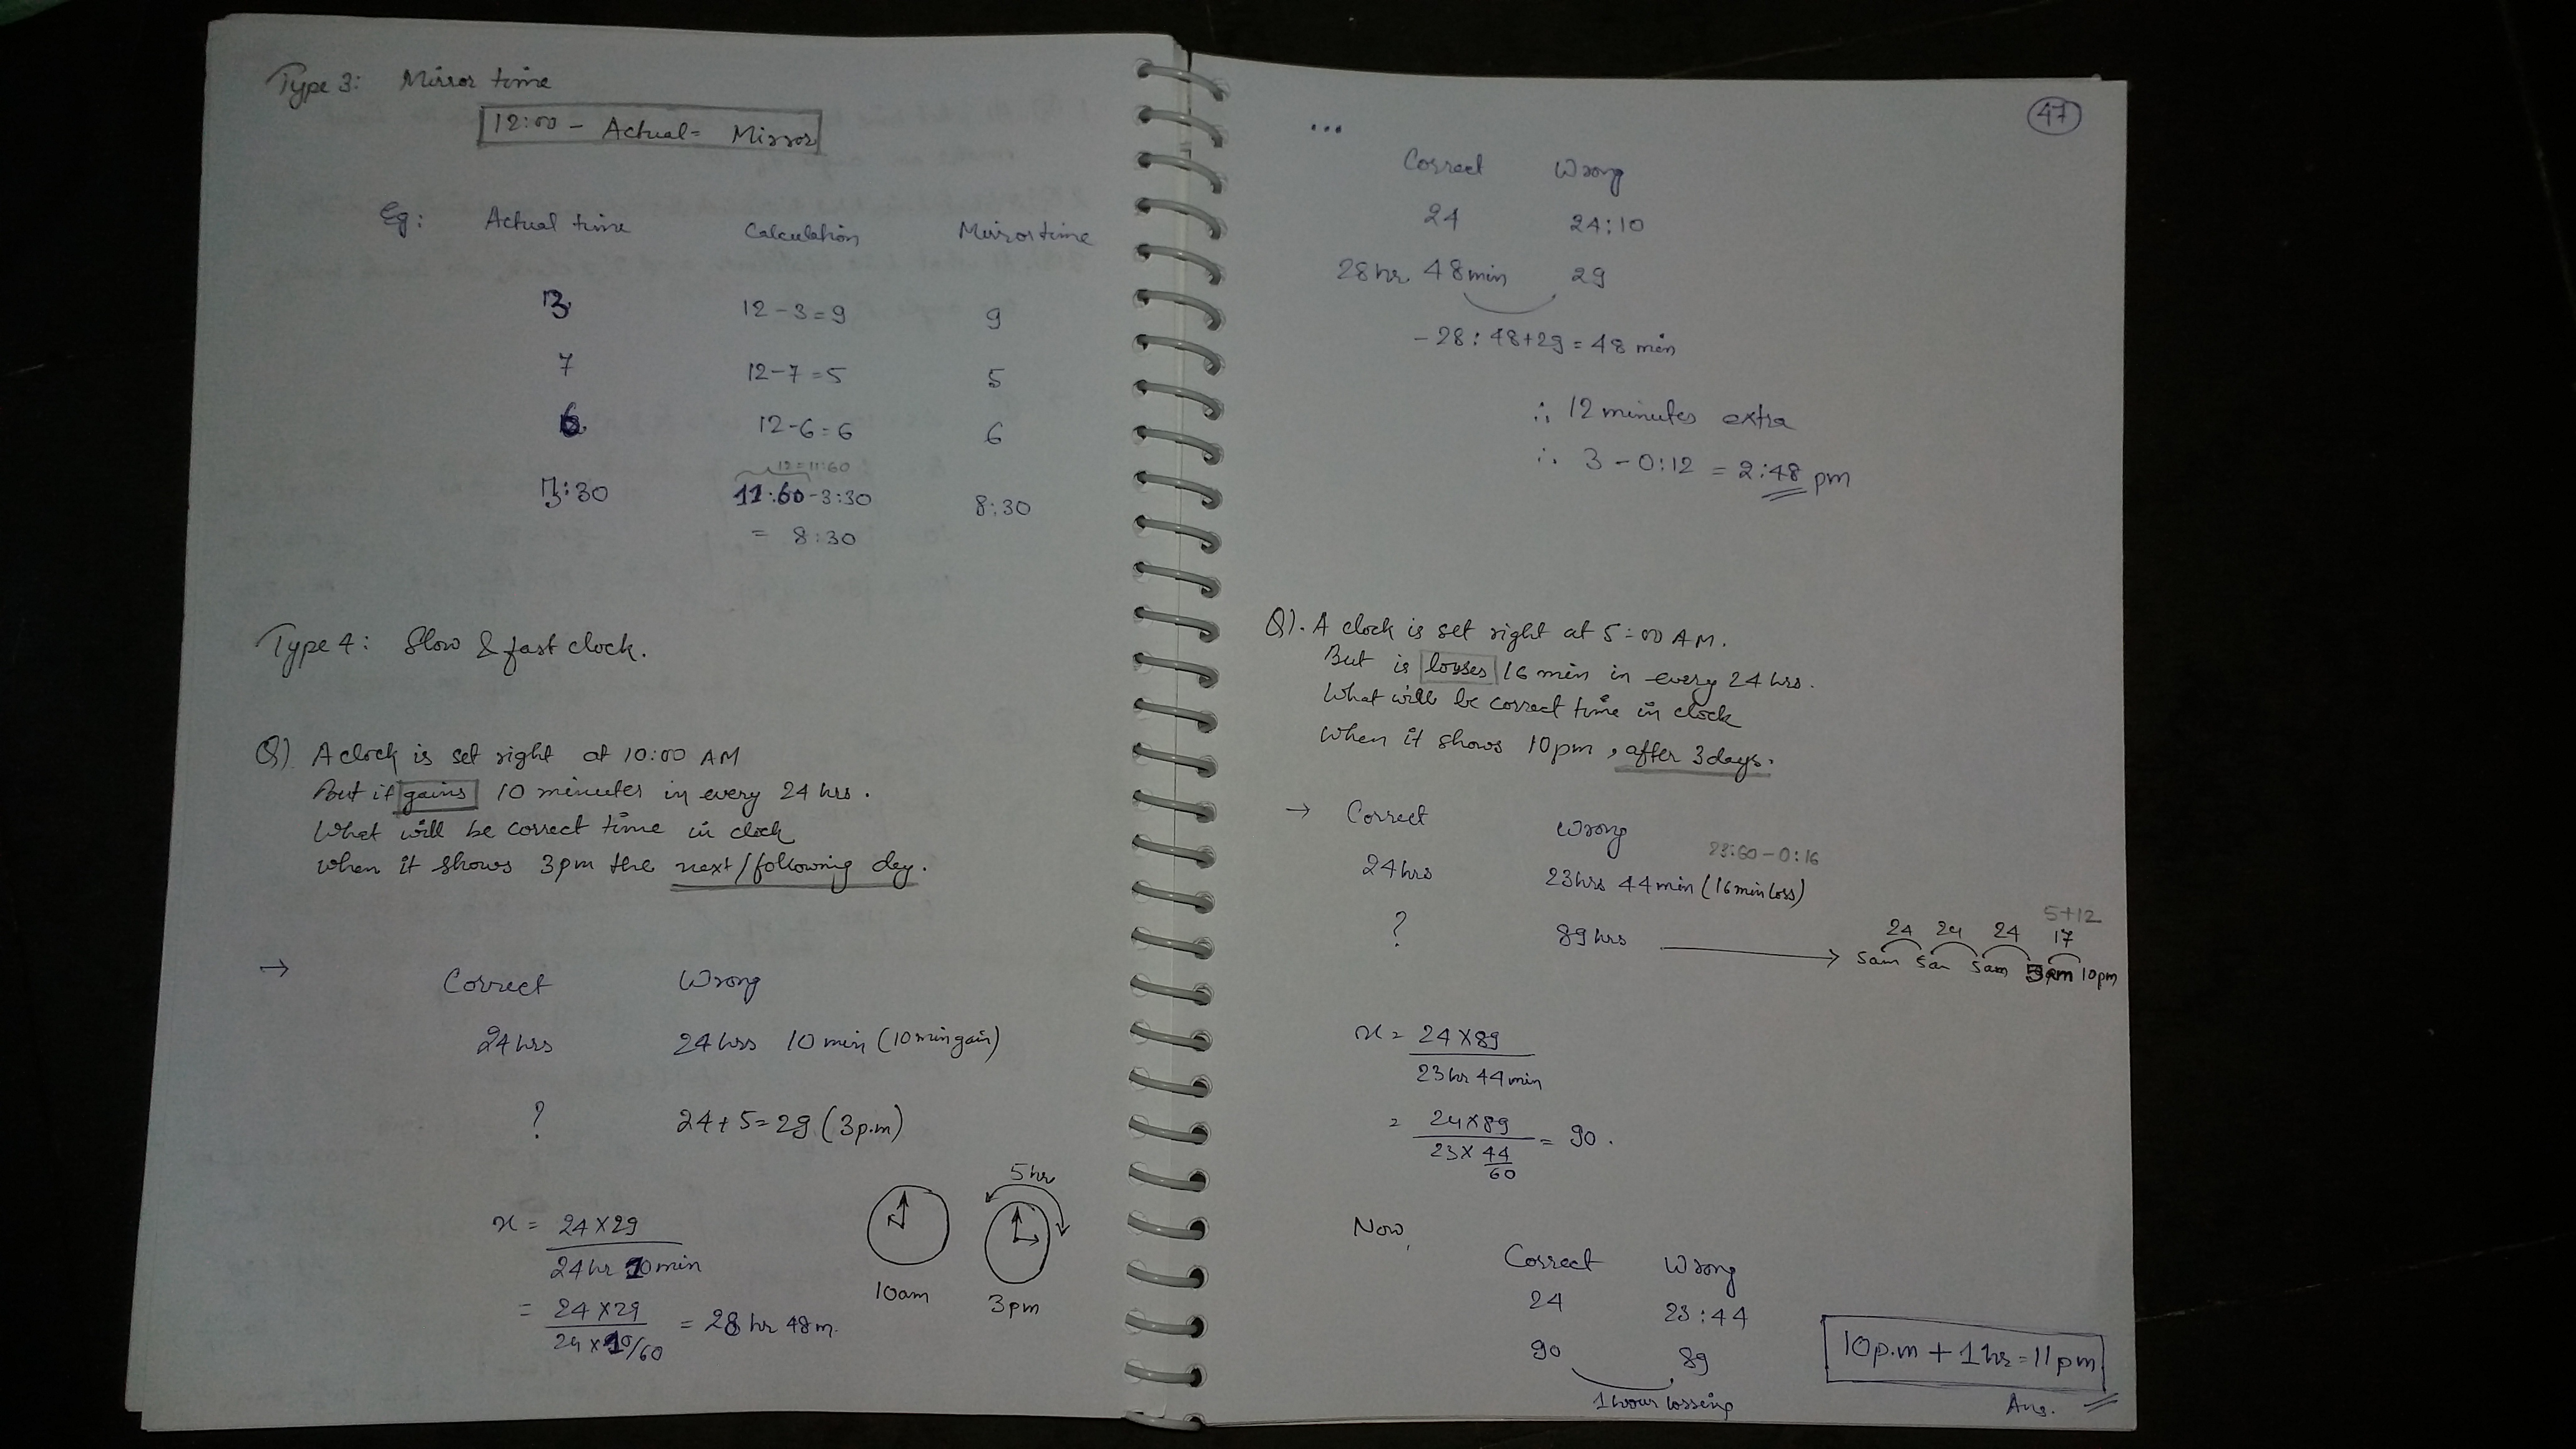 Type 3: Mirror time
12:00 - Actual = Mirror
Eg: Actual time Calculation Mirror time
3 12-3=9 9
7 12-7=5 5
6 12-6=6 6
12=11:60
3:30 11:60-3:30 8:30
= 8:30
Type 4: Slow & fast clock.
Q) A clock is set right at 10:00 AM
But it gains 10 minutes in every 24 hrs.
What will be correct time in clock
when it shows 3pm the next/following day.
→ Correct Wrong
24hrs 24hrs 10 min (10 min gain)
? 24+5=29 (3p.m)
5hr
x = 24×29
24hr 10min
10am 3pm
= 24×29 = 28 hr 48m.
24×10/60
47
...
Correct Wrong
24 24:10
28hr. 48min 29
-28:48+29=48 min
∴ 12 minutes extra
∴ 3-0:12 = 2:48 pm
Q). A clock is set right at 5:00 AM.
But is looses 16 min in every 24 hrs.
What will be correct time in clock
When it shows 10pm, after 3 days.
→ Correct Wrong
23:60-0:16
24hrs 23hrs 44min (16min loss)
5+12
24 24 24 17
? 89hrs → 5am 5am 5am 5am 10pm
x = 24×89
23hr 44min
= 24×89 = 90.
23×44
60
Now,
Correct Wrong
24 23:44
90 89
1 hour lossing
10p.m + 1hr = 11pm
Ans.